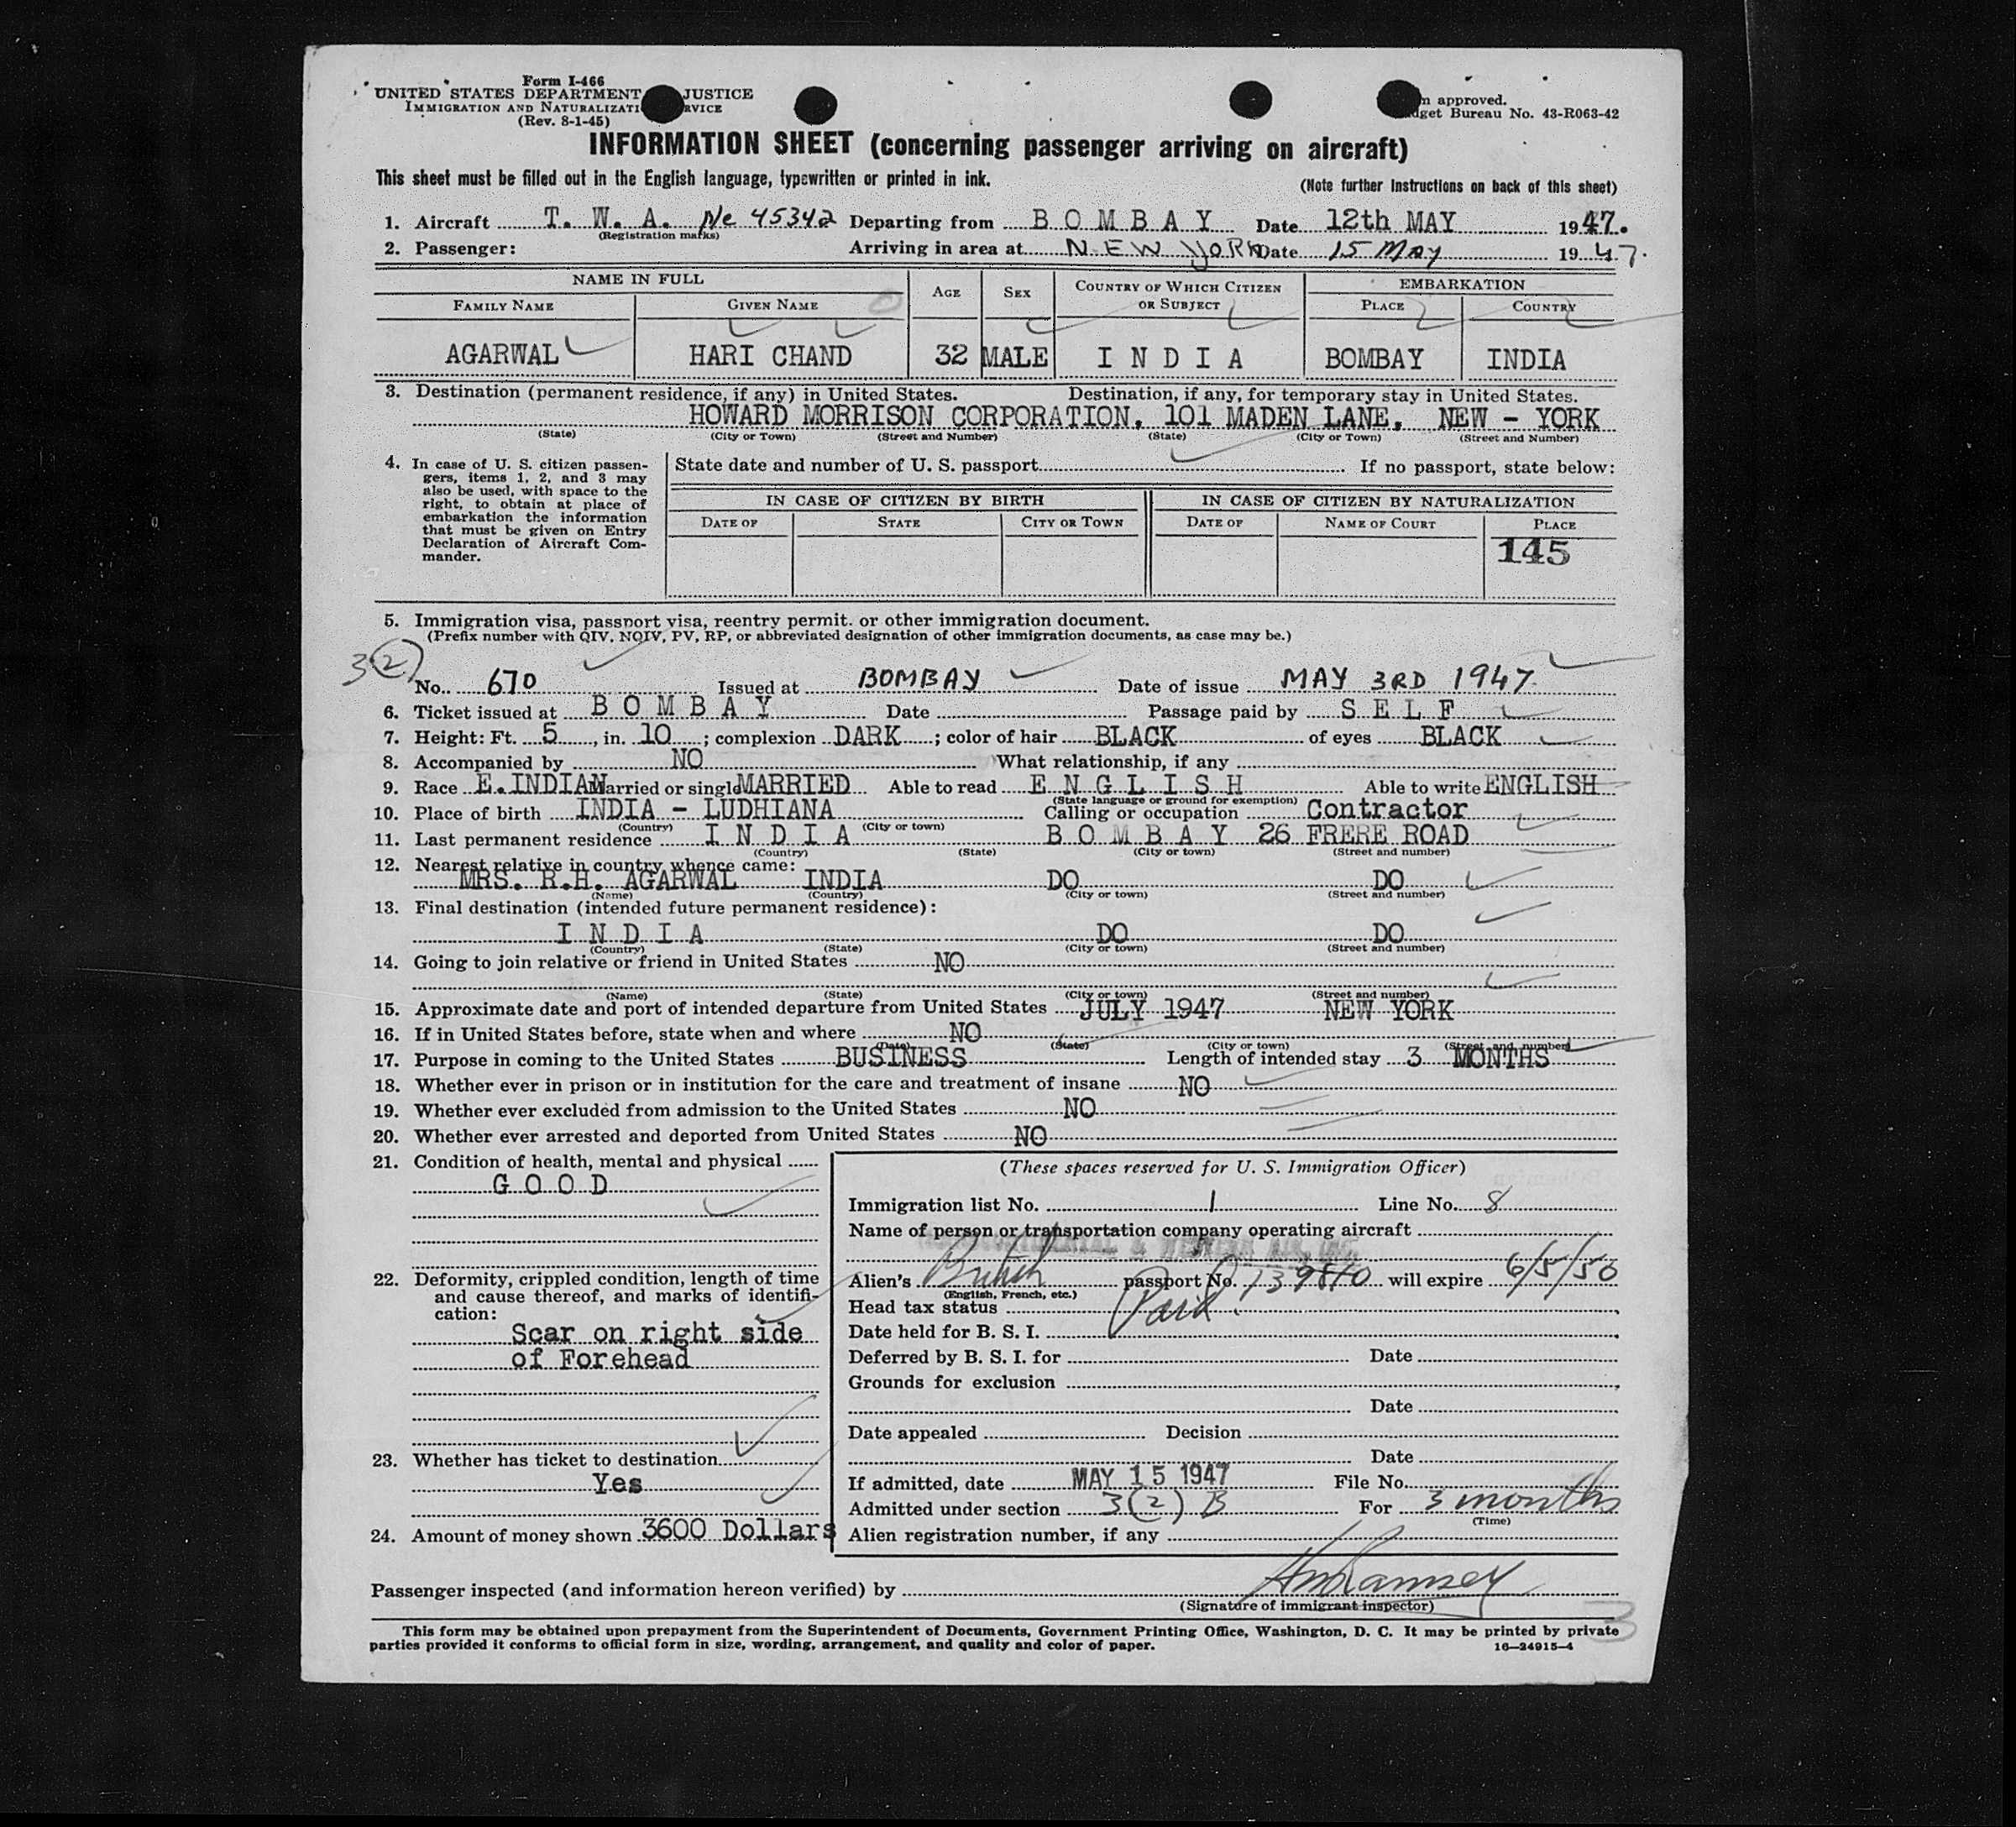 Form I-466
UNITED STATES DEPARTMENT JUSTICE
IMMIGRATION AND NATURALIZATI RVICE
(Rev. 8-1-45)
n approved.
dget Bureau No. 43-R063-42
INFORMATION SHEET (concerning passenger arriving on aircraft)
This sheet must be filled out in the English language, typewritten or printed in ink.
(Note further instructions on back of this sheet)
1. Aircraft T. W. A. Nc 45342 Departing from BOMBAY Date 12th MAY 1947.
(Registration marks)
2. Passenger: Arriving in area at NEW YORK Date 15 May 1947.
NAME IN FULL AGE SEX COUNTRY OF WHICH CITIZEN OR SUBJECT EMBARKATION
FAMILY NAME GIVEN NAME PLACE COUNTRY
AGARWAL HARI CHAND 32 MALE INDIA BOMBAY INDIA
3. Destination (permanent residence, if any) in United States. Destination, if any, for temporary stay in United States.
HOWARD MORRISON CORPORATION, 101 MADEN LANE, NEW - YORK
(State) (City or Town) (Street and Number) (State) (City or Town) (Street and Number)
4. In case of U. S. citizen passen-
gers, items 1, 2, and 3 may
also be used, with space to the
right, to obtain at place of
embarkation the information
that must be given on Entry
Declaration of Aircraft Com-
mander.
State date and number of U. S. passport If no passport, state below:
IN CASE OF CITIZEN BY BIRTH IN CASE OF CITIZEN BY NATURALIZATION
DATE OF STATE CITY OR TOWN DATE OF NAME OF COURT PLACE
145
5. Immigration visa, passport visa, reentry permit, or other immigration document.
(Prefix number with QIV, NQIV, PV, RP, or abbreviated designation of other immigration documents, as case may be.)
3(2)
No. 670 Issued at BOMBAY Date of issue MAY 3RD 1947
6. Ticket issued at BOMBAY Date Passage paid by SELF
7. Height: Ft. 5, in. 10; complexion DARK; color of hair BLACK of eyes BLACK
8. Accompanied by NO What relationship, if any
9. Race E.INDIAN Married or single MARRIED Able to read ENGLISH Able to write ENGLISH
(State language or ground for exemption)
10. Place of birth INDIA - LUDHIANA Calling or occupation Contractor
(Country) (City or town)
11. Last permanent residence INDIA BOMBAY 26 FRERE ROAD
(Country) (State) (City or town) (Street and number)
12. Nearest relative in country whence came:
MRS. R.H. AGARWAL INDIA DO DO
(Name) (Country) (City or town) (Street and number)
13. Final destination (intended future permanent residence):
INDIA DO DO
(Country) (State) (City or town) (Street and number)
14. Going to join relative or friend in United States NO
(Name) (State) (City or town) (Street and number)
15. Approximate date and port of intended departure from United States JULY 1947 NEW YORK
16. If in United States before, state when and where NO
(Date) (State) (City or town) (Street and number)
17. Purpose in coming to the United States BUSINESS Length of intended stay 3 MONTHS
18. Whether ever in prison or in institution for the care and treatment of insane NO
19. Whether ever excluded from admission to the United States NO
20. Whether ever arrested and deported from United States NO
21. Condition of health, mental and physical
GOOD
22. Deformity, crippled condition, length of time
and cause thereof, and marks of identifi-
cation:
Scar on right side
of Forehead
23. Whether has ticket to destination
Yes
24. Amount of money shown 3600 Dollars
(These spaces reserved for U. S. Immigration Officer)
Immigration list No. 1 Line No. 8
Name of person or transportation company operating aircraft
Alien's British passport No. 139810 will expire 6/5/50
(English, French, etc.)
Head tax status Paid.
Date held for B. S. I.
Deferred by B. S. I. for Date
Grounds for exclusion
Date
Date appealed Decision
Date
If admitted, date MAY 15 1947 File No.
Admitted under section 3(2) B For 3 months
(Time)
Alien registration number, if any
Passenger inspected (and information hereon verified) by
(Signature of immigrant inspector)
3
This form may be obtained upon prepayment from the Superintendent of Documents, Government Printing Office, Washington, D. C. It may be printed by private
parties provided it conforms to official form in size, wording, arrangement, and quality and color of paper.
16—24915-4